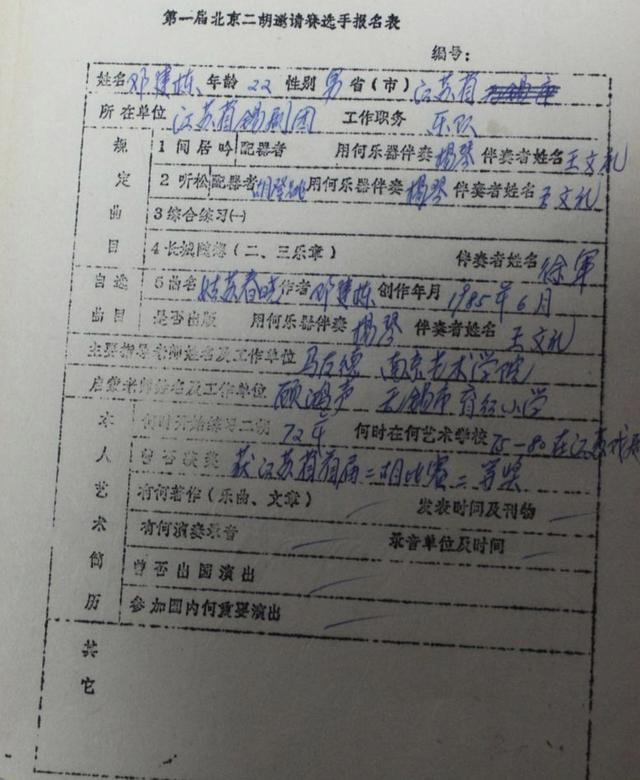 第一届北京二胡邀请赛选手报名表
编号：
姓名 邓建栋 年龄 22 性别 男 省（市）江苏省 无锡市
所在单位 江苏省锡剧团 工作职务 乐队
规定曲目
1 闲居吟 配器者 用何乐器伴奏 扬琴 伴奏者姓名 王文礼
2 听松 配器者 胡登跳 用何乐器伴奏 扬琴 伴奏者姓名 王文礼
3 综合练习㈠
4 长城随想（二、三乐章） 伴奏者姓名 徐军
自选曲目
5 曲名 姑苏春晓 作者 邓建栋 创作年月 1985年6月
是否出版 用何乐器伴奏 扬琴 伴奏者姓名 王文礼
主要指导老师姓名及工作单位 马友德 南京艺术学院
启蒙老师姓名及工作单位 顾鸿声 无锡市育红小学
本人艺术简历
何时开始练习二胡 72年 何时在何艺术学校 75-80在江苏戏
曾否获奖 获江苏省首届二胡比赛二等奖
有何著作（乐曲、文章） 发表时间及刊物
有何演奏录音 录音单位及时间
曾否出国演出
参加国内何重要演出
其它